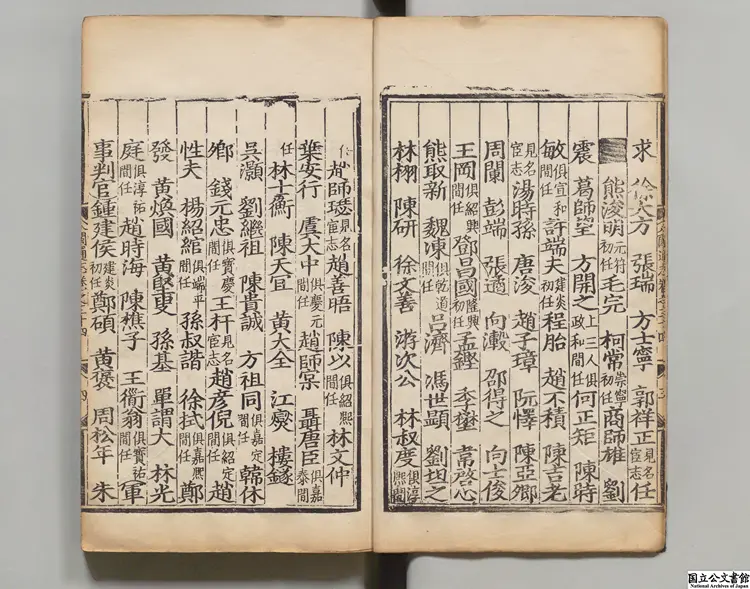 求 徐大方 張瑞 方士寧 郭祥正見名宦志任
熊浚明元符初任毛完 柯常崇寧初任商師雄 劉
震 葛師望 方開之上三人俱政和間任何正矩 陳時
敏俱宣和間任許端夫建炎初任程胎 趙不積 陳吉老
見名宦志湯時孫 唐浚 趙子璋 阮懌 陳亞卿
周闌 彭端 張適 向瀫 邵得之 向士俊
王岡俱紹興間任鄧昌國隆興初任孟鏗 季㮚 常啓心
熊取新 魏凍俱乾道間任呂濟 馮世顯 劉坦之
林栩 陳研 徐文善 游次公 林叔度俱淳熙間
任 師 見名宦志趙善晤 陳以俱紹熙間任林文仲
葉安行 虞大中俱慶元間任趙師 聶唐臣俱嘉泰間
任林士衡 陳天宜 黃大全 江 樓鐩
吳灝 劉繼祖 陳貴誠 方祖同俱嘉定間任韓休
鄉 錢元忠俱寶慶間任王杆見名宦志趙彥倪俱紹定間任趙
性夫 楊紹綰俱端平間任孫叔諧 徐拭俱嘉熙間任鄭
發 黃煥國 黃 孫基 單謂大 林光
庭俱淳祐間任趙時海 陳樵子 王衢翁俱寶祐間任軍
事判官鍾建侯建炎初任鄭碩 黃褒 周松年 朱
三
四
国立公文書館
National Archives of Japan